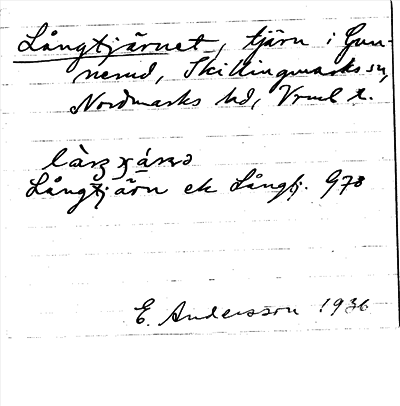 Långtjärnet, tjärn i Gun-
nerud, Skillingmarks sn,
Nordmarks hd, Vrml l.
Långtjärn ek Långtj. 978
E. Andersson 1936